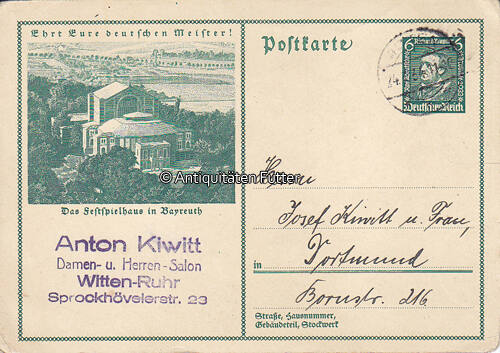 Ehrt Eure deutschen Meister!
Postkarte
6 Richard Wagner 6
Deutsches Reich
© Antiquitäten Fütter
Das Festspielhaus in Bayreuth
Anton Kiwitt
Damen- u. Herren-Salon
Witten-Ruhr
Sprockhövelerstr. 23
Herrn
Josef Kiwitt u. Frau,
in Dortmund
Bornstr. 216
Straße, Hausnummer,
Gebäudeteil, Stockwerk